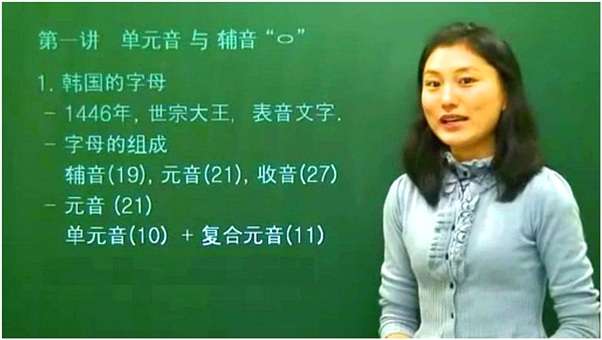 第一讲 单元音 与 辅音 “ㅇ”
1. 韩国的字母
- 1446年, 世宗大王, 表音文字.
- 字母的组成
辅音(19), 元音(21), 收音(27)
- 元音 (21)
单元音(10) + 复合元音(11)